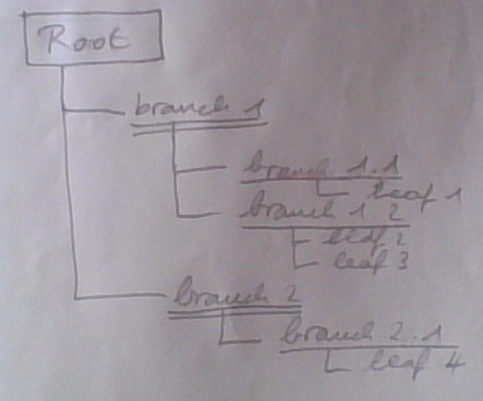 Root
branch 1
branch 1.1
leaf 1
branch 1 2
leaf 2
leaf 3
branch 2
branch 2.1
leaf 4